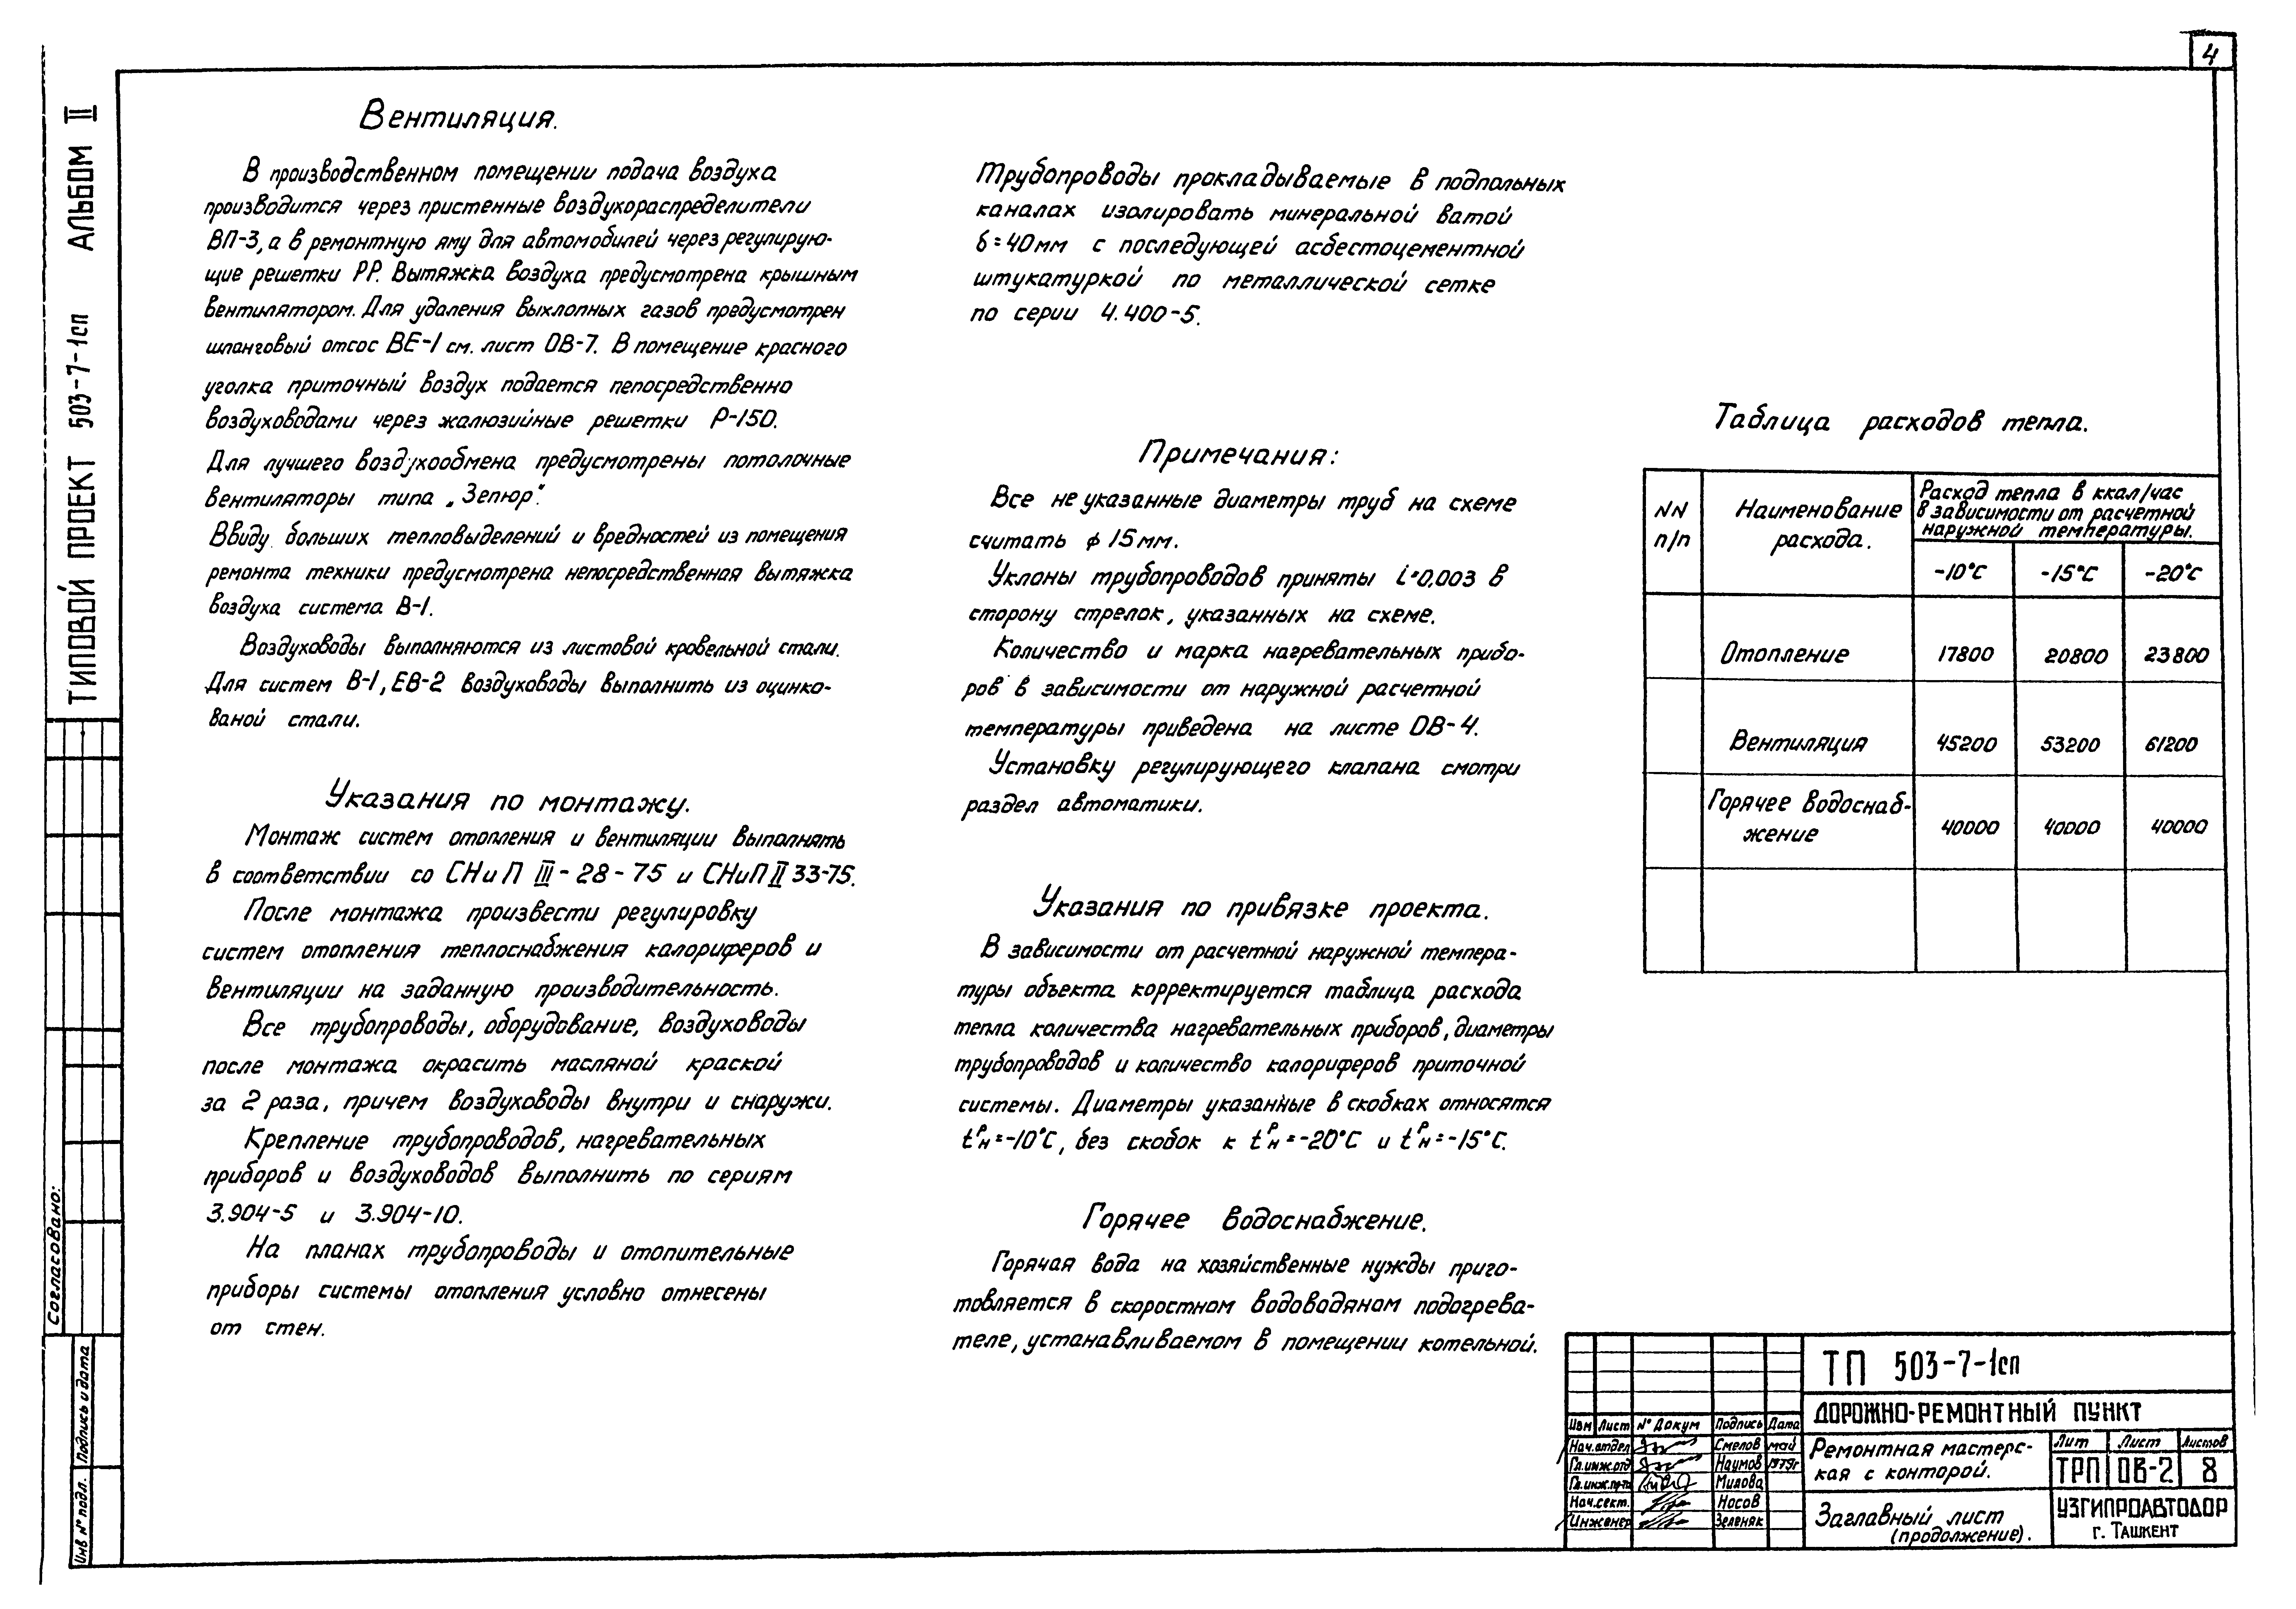 4
ТИПОВОЙ ПРОЕКТ 503-7-1сп АЛЬБОМ II
Вентиляция.
В производственном помещении подача воздуха
производится через пристенные воздухораспределители
ВП-3, а в ремонтную яму для автомобилей через регулирую-
щие решетки РР. Вытяжка воздуха предусмотрена крышным
вентилятором. Для удаления выхлопных газов предусмотрен
шланговый отсос ВЕ-1 см. лист ОВ-7. В помещение красного
уголка приточный воздух подается непосредственно
воздуховодами через жалюзийные решетки Р-150.
Для лучшего воздухообмена предусмотрены потолочные
вентиляторы типа „Зепюр".
Ввиду больших тепловыделений и вредностей из помещения
ремонта техники предусмотрена непосредственная вытяжка
воздуха система В-1.
Воздуховоды выполняются из листовой кровельной стали.
Для систем В-1, ЕВ-2 воздуховоды выполнить из оцинко-
ваной стали.
Указания по монтажу.
Монтаж систем отопления и вентиляции выполнять
в соответствии со СНиП III-28-75 и СНиП II 33-75.
После монтажа произвести регулировку
систем отопления теплоснабжения калориферов и
вентиляции на заданную производительность.
Все трубопроводы, оборудование, воздуховоды
после монтажа окрасить масляной краской
за 2 раза, причем воздуховоды внутри и снаружи.
Крепление трубопроводов, нагревательных
приборов и воздуховодов выполнить по сериям
3.904-5 и 3.904-10.
На планах трубопроводы и отопительные
приборы системы отопления условно отнесены
от стен.
Трубопроводы прокладываемые в подпольных
каналах изолировать минеральной ватой
δ=40мм с последующей асбестоцементной
штукатуркой по металлической сетке
по серии 4.400-5.
Примечания:
Все не указанные диаметры труб на схеме
считать ϕ 15мм.
Уклоны трубопроводов приняты i=0,003 в
сторону стрелок, указанных на схеме.
Количество и марка нагревательных прибо-
ров в зависимости от наружной расчетной
температуры приведена на листе ОВ-4.
Установку регулирующего клапана смотри
раздел автоматики.
Указания по привязке проекта.
В зависимости от расчетной наружной темпера-
туры объекта корректируется таблица расхода
тепла количества нагревательных приборов, диаметры
трубопроводов и количество калориферов приточной
системы. Диаметры указанные в скобках относятся
tᴾн=-10°С, без скобок к tᴾн=-20°С и tᴾн=-15°С.
Горячее водоснабжение.
Горячая вода на хозяйственные нужды приго-
товляется в скоростном водоводяном подогрева-
теле, устанавливаемом в помещении котельной.
Таблица расходов тепла.
NN п/п
Наименование расхода.
Расход тепла в ккал/час
в зависимости от расчетной
наружной температуры.
-10°С -15°С -20°С
Отопление 17800 20800 23800
Вентиляция 45200 53200 61200
Горячее водоснаб-
жение 40000 40000 40000
ТП 503-7-1сп
ДОРОЖНО-РЕМОНТНЫЙ ПУНКТ
Изм Лист N° Докум Подпись Дата
Нач.отдел Смелов май
Гл.инж.отд Наумов 1979г
Гл.инж.пр-та Милова
Нач.сект. Носов
Инженер Зеленяк
Ремонтная мастерс-
кая с конторой.
Лит Лист Листов
ТРП ОВ-2 8
Заглавный лист
(продолжение).
УЗГИПРОАВТОДОР
г. Ташкент
Согласовано:
Подпись и дата
Инв N° подл.